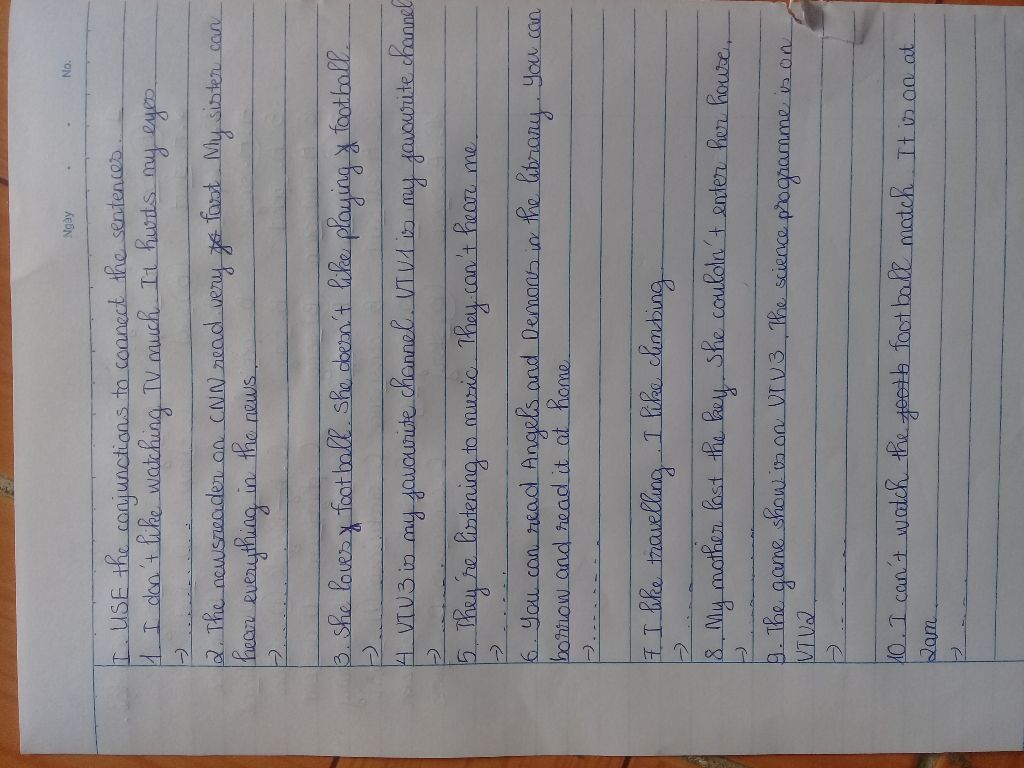 Ngày . . No.
I. USE the conjunctions to connect the sentences.
1. I don't like watching TV much. It hurts my eyes.
-> .......
2. The newsreader on CNN read very fast. My sister can
hear everything in the news.
-> .......
3. She loves football. She doesn't like playing football.
-> .......
4. VTV3 is my favourite channel. VTV1 is my favourite channel
-> .......
5. They're listening to music. They can't hear me.
-> .......
6. You can read Angels and Demons in the library. You can
borrow and read it at home.
-> .......
7. I like travelling. I like climbing.
-> .......
8. My mother lost the key. She couldn't enter her house.
-> .......
9. The game show is on VTV3. The science programme is on
VTV2
-> .......
10. I can't watch the football match. It is on at
2am.
-> .......